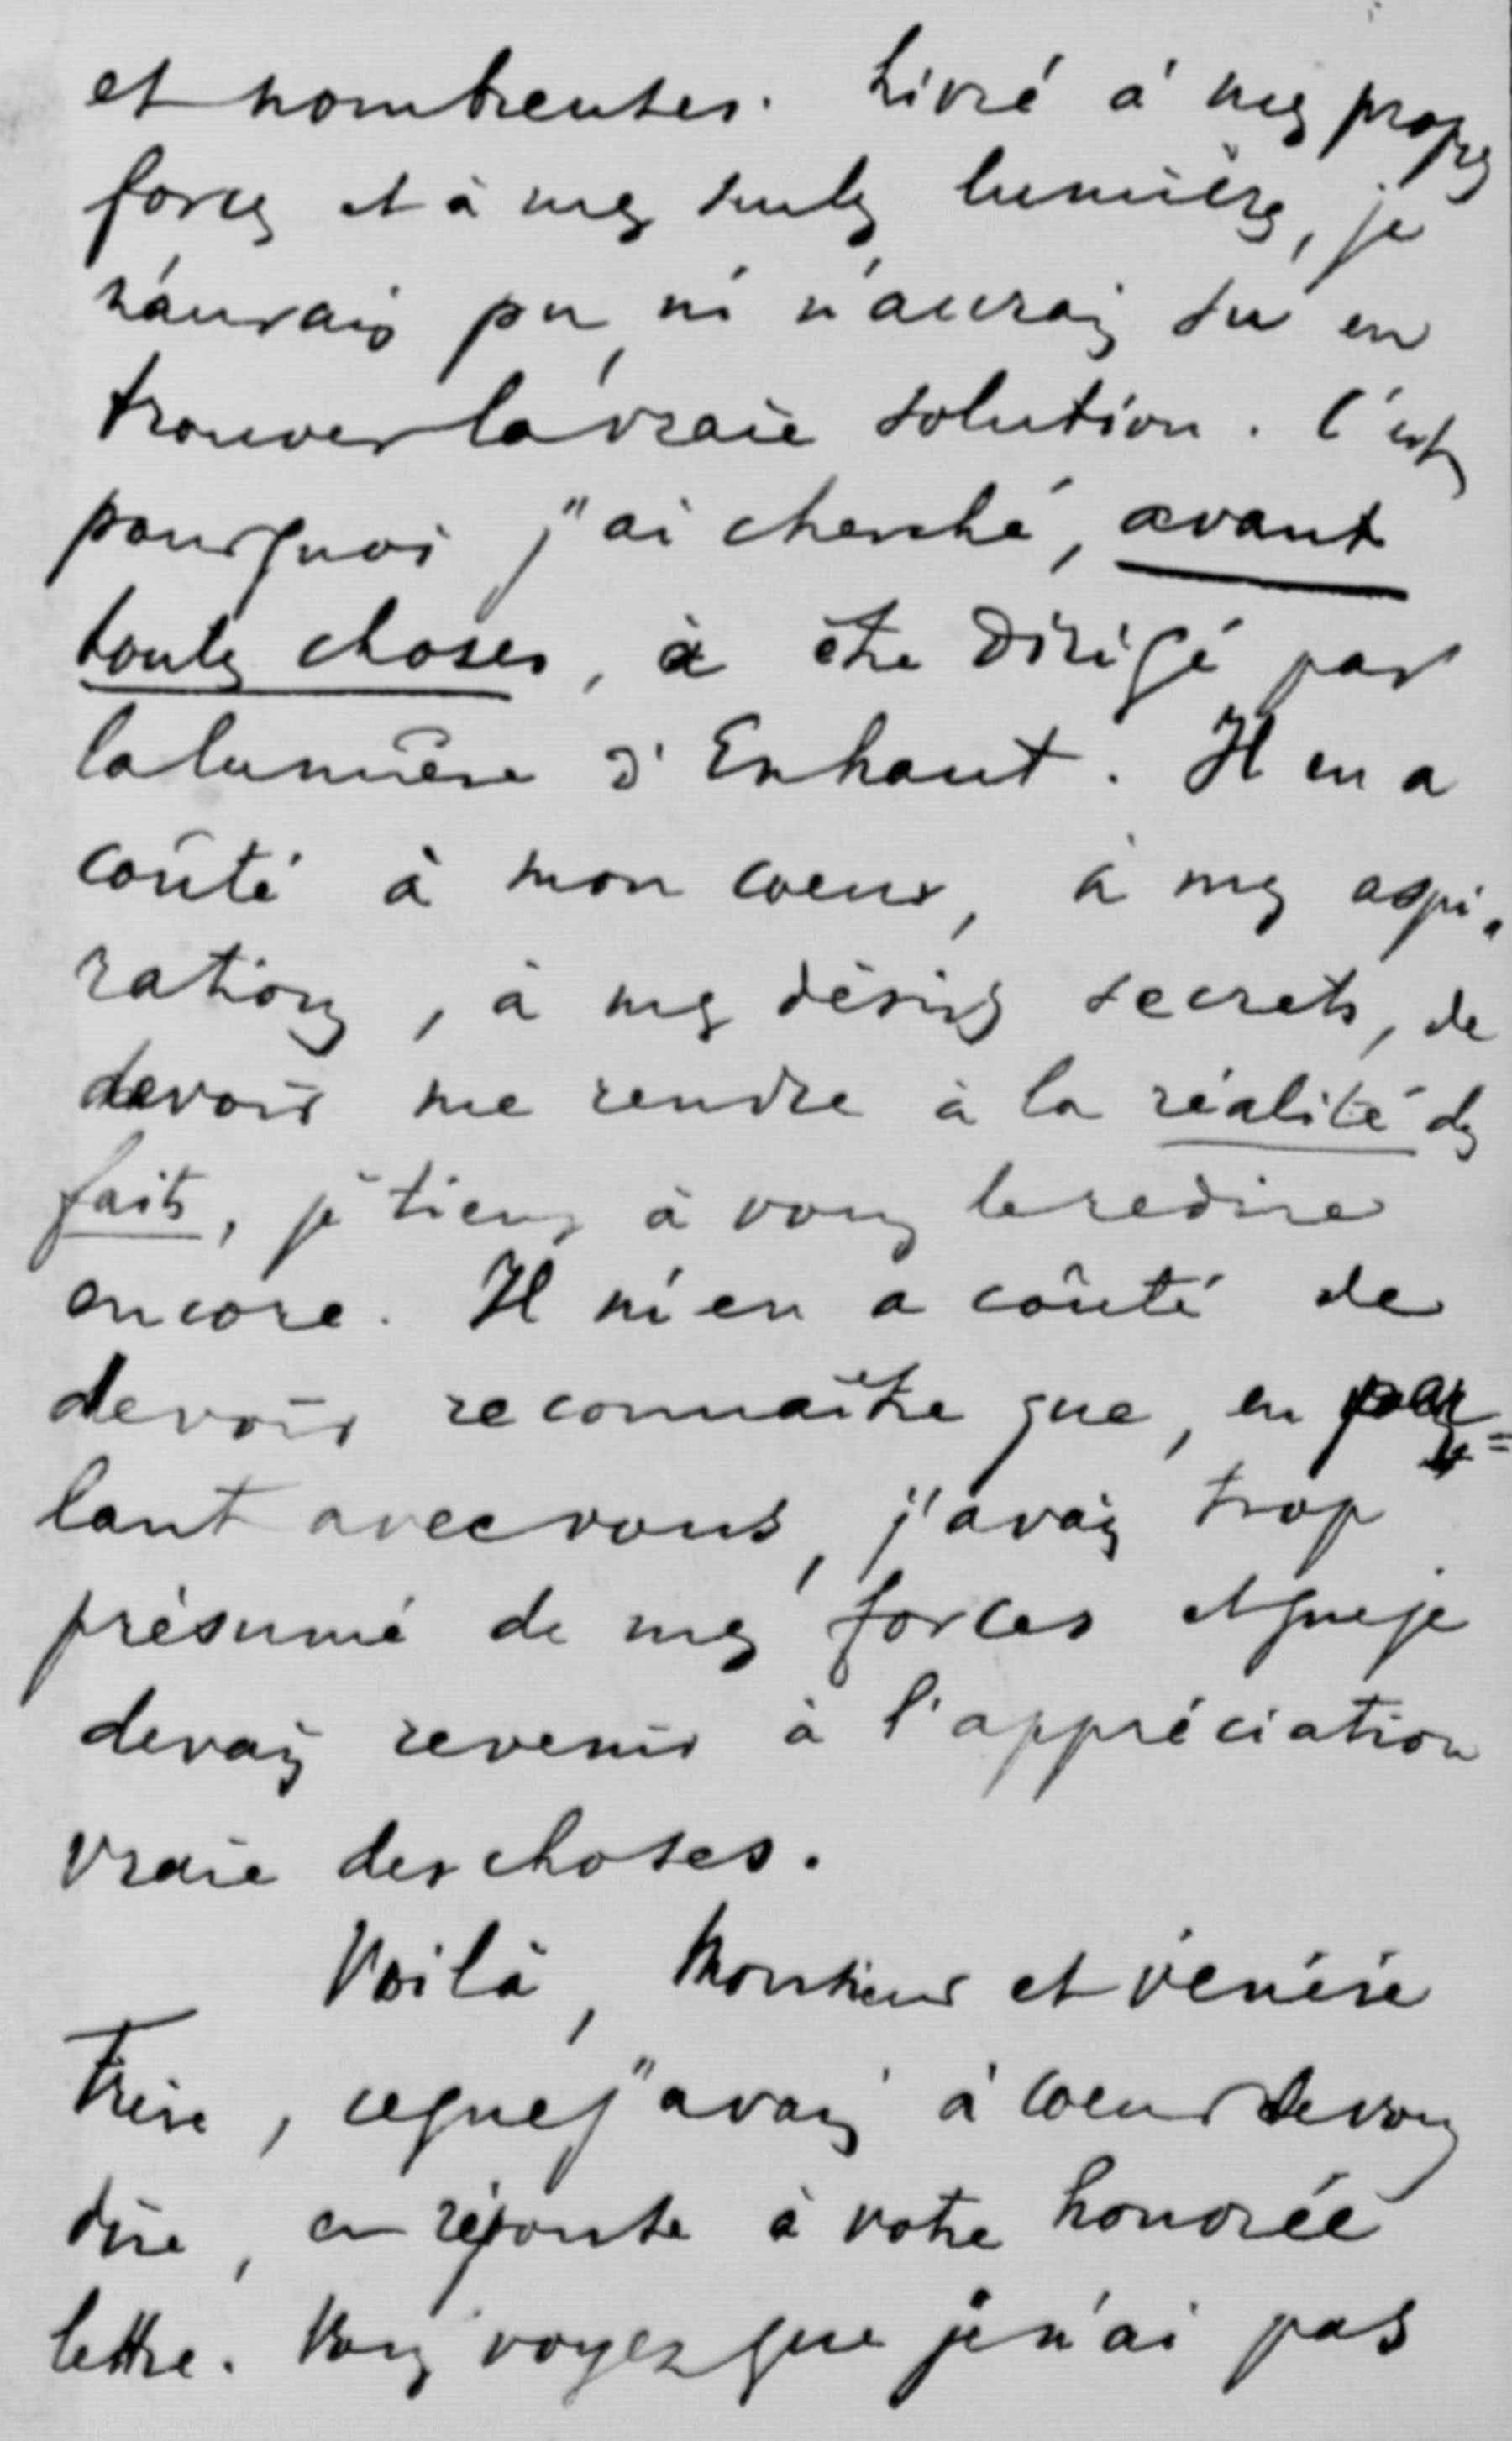 et nombreuses. Livré à mes propres
forces et à mes seules lumières, je
n'aurais pu, ni n'aurais su en
trouver la vraie solution. C'est
pourquoi j'ai cherché, avant
toutes choses, à être dirigé par
la lumière d'Enhaut. Il en a
coûté à mon coeur, à mes aspi-
rations, à mes désirs secrets, de
devoir me rendre à la réalité des
faits, je tiens à vous le redire
encore. Il m'en a coûté de
devoir reconnaître que, en par=
lant avec vous, j'avais trop
présumé de mes forces et que je
devais revenir à l'appréciation
vraie des choses.
Voilà, Monsieur et vénéré
Frère, ce que j'avais à coeur de vous
dire, en réponse à votre honorée
lettre. Vous voyez que je n'ai pas